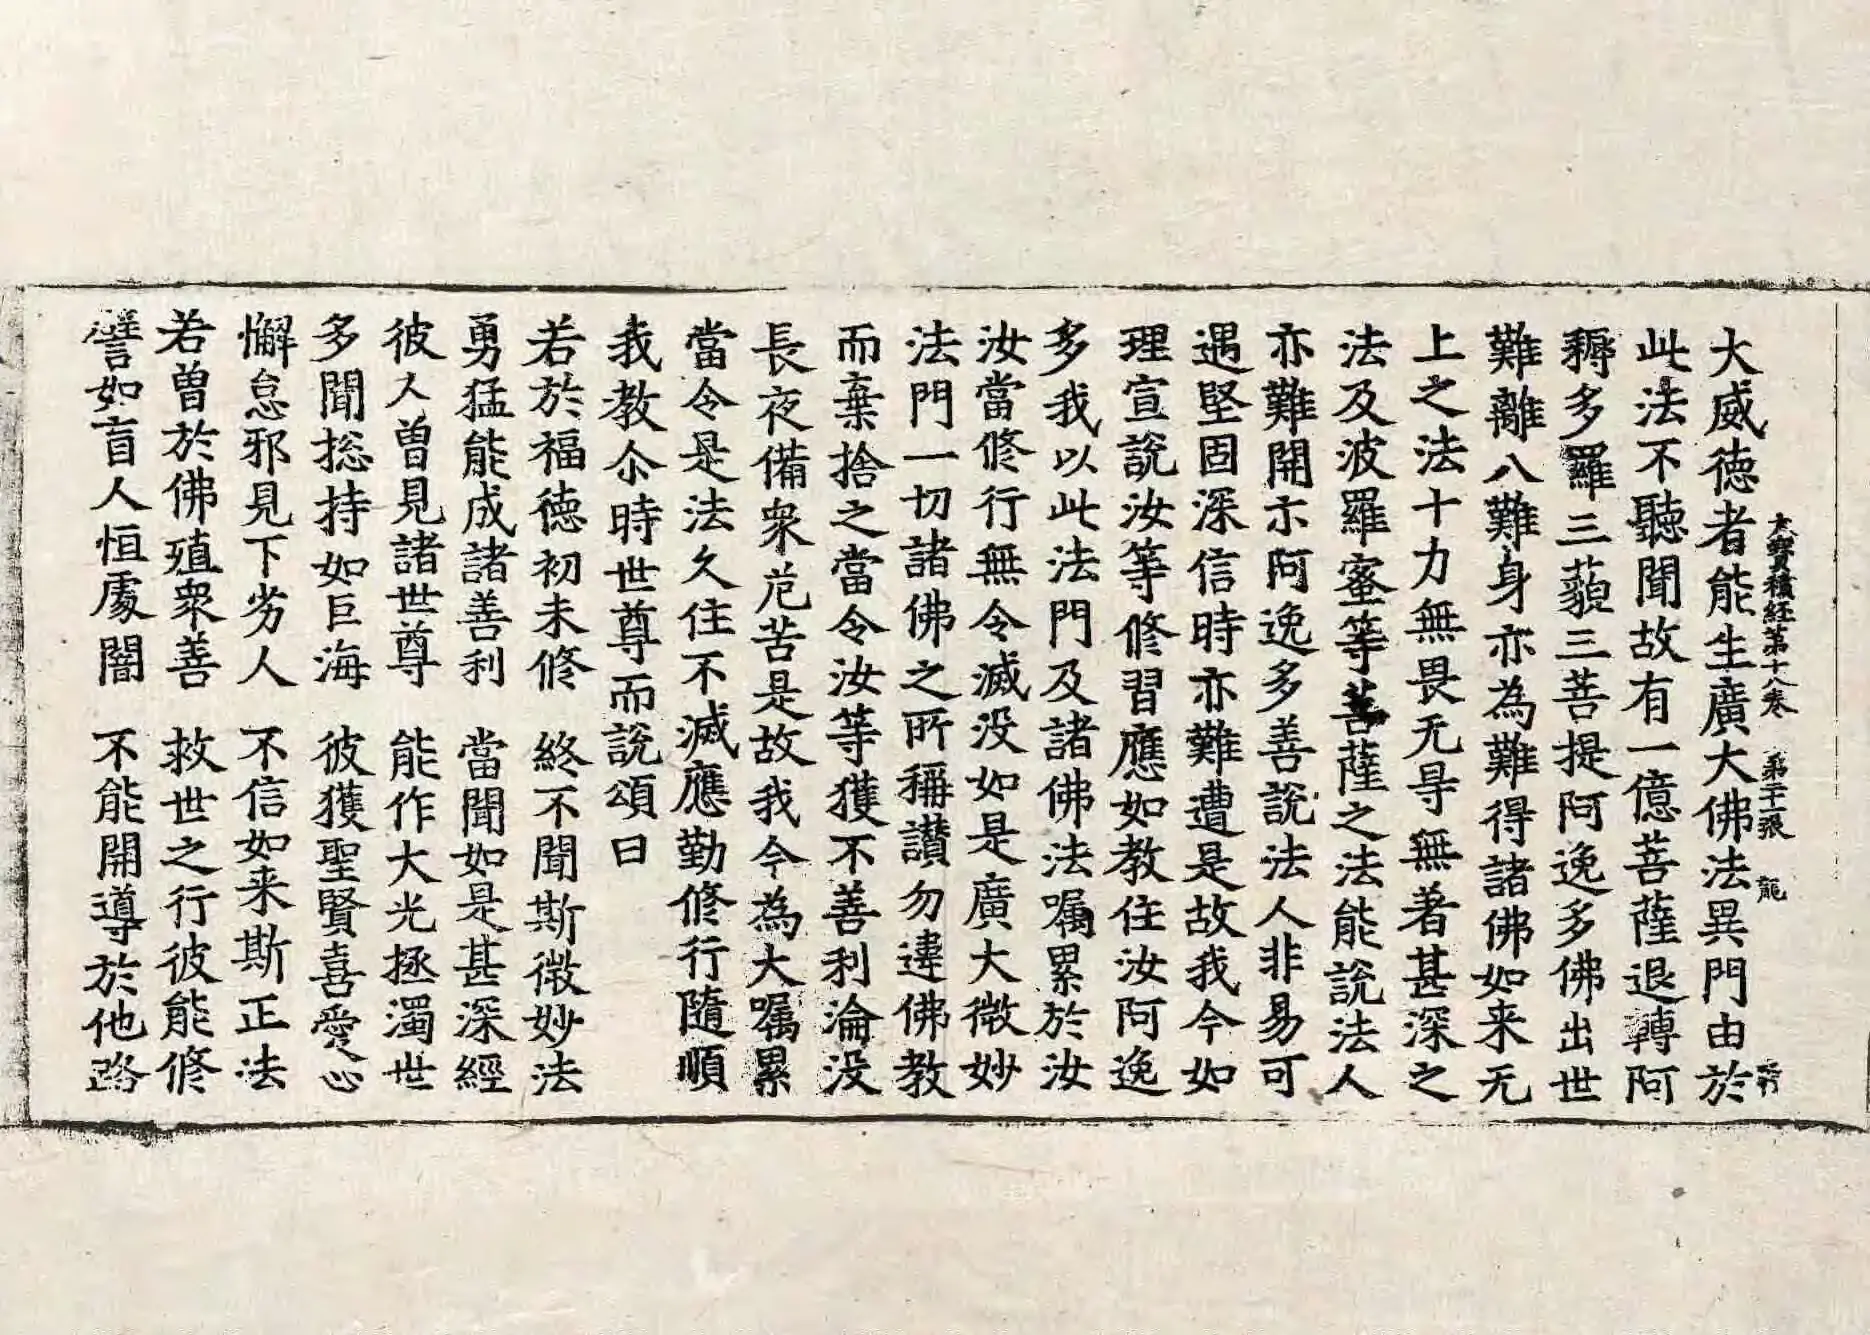 大寶積經第十八卷 第二十一張 龍
大威德者能生廣大佛法異門由於
此法不聽聞故有一億菩薩退轉阿
耨多羅三藐三菩提阿逸多佛出世
難離八難身亦為難得諸佛如来无
上之法十力無畏无㝵無著甚深之
法及波羅蜜等菩薩之法能說法人
亦難開示阿逸多善說法人非易可
遇堅固深信時亦難遭是故我今如
理宣說汝等修習應如教住汝阿逸
多我以此法門及諸佛法嘱累於汝
汝當修行無令滅没如是廣大微妙
法門一切諸佛之所稱讃勿違佛教
而棄捨之當令汝等獲不善利淪没
長夜備衆危苦是故我今為大嘱累
當令是法久住不滅應勤修行隨順
我教尒時世尊而說頌曰
若於福德初未修 終不聞斯微妙法
勇猛能成諸善利 當聞如是甚深經
彼人曽見諸世尊 能作大光拯濁世
多聞揔持如巨海 彼獲聖賢喜愛心
懈怠邪見下劣人 不信如来斯正法
若曽於佛殖衆善 救世之行彼能修
譬如盲人恒處闇 不能開導於他路